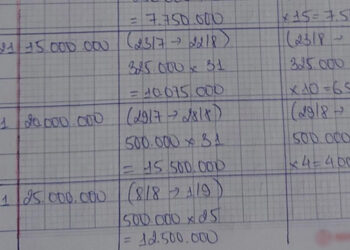 = 7.750.000
×15 = 7.5
21 15.000.000 (23/7 → 22/8) (23/8 →
325.000 × 31 325.000
= 10.075.000 ×10 = 65
1 20.000.000 (29/7 → 28/8) (29/8 →
500.000 × 31 500.000
= 15.500.000 ×4 = 400
1 25.000.000 (8/8 → 1/9)
500.000 × 25
= 12.500.000